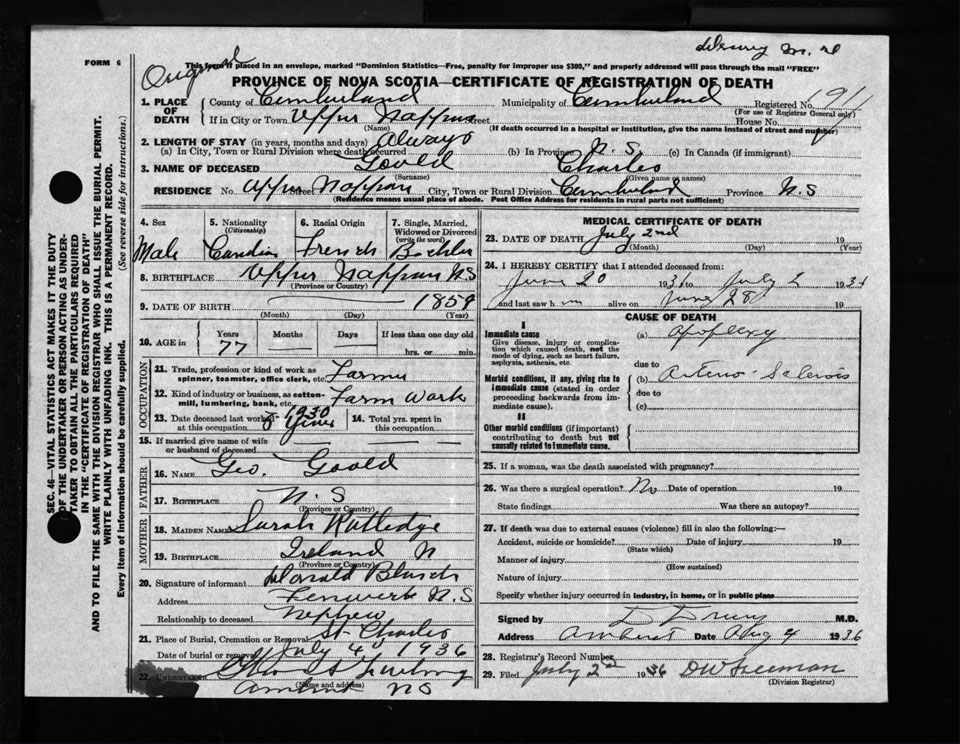 Drury M.D
FORM 6
Original
This form if placed in an envelope, marked "Dominion Statistics—Free, penalty for improper use $300," and properly addressed will pass through the mail "FREE"
PROVINCE OF NOVA SCOTIA—CERTIFICATE OF REGISTRATION OF DEATH
1. PLACE OF DEATH County of Cumberland Municipality of Cumberland Registered No.
(For use of Registrar General only)
If in City or Town Upper Nappan Street House No.
(Name) (If death occurred in a hospital or institution, give the name instead of street and number)
2. LENGTH OF STAY (in years, months and days) Always
(a) In City, Town or Rural Division where death occurred (b) In Province N.S (c) In Canada (if immigrant)
3. NAME OF DECEASED Goveld Charles
(Surname) (Given name or names)
RESIDENCE No. Upper Nappan Street City, Town or Rural Division Cumberland Province N.S
(Residence means usual place of abode. Post Office Address for residents in rural parts not sufficient)
4. Sex 5. Nationality (Citizenship) 6. Racial Origin 7. Single, Married, Widowed or Divorced (write the word)
Male Candian French
8. BIRTHPLACE Upper Nappan N.S
(Province or Country)
9. DATE OF BIRTH 1859
(Month) (Day) (Year)
10. AGE in Years Months Days If less than one day old
77 hrs. or min.
OCCUPATION
11. Trade, profession or kind of work as spinner, teamster, office clerk, etc. Farmer
12. Kind of industry or business, as cotton-mill, lumbering, bank, etc. Farm Work
13. Date deceased last worked at this occupation 1930 6 years 14. Total yrs. spent in this occupation
15. If married give name of wife or husband of deceased
FATHER
16. NAME Geo. Goveld
17. BIRTHPLACE N.S
(Province or Country)
MOTHER
18. MAIDEN NAME Sarah Rutledge
19. BIRTHPLACE Ireland N
(Province or Country)
20. Signature of informant Donald
Address Fenwick N.S
Relationship to deceased Nephew
21. Place of Burial, Cremation or Removal St Charles
Date of burial or removal July 4 1936
22. UNDERTAKER
(Name and address)
Amherst NS
MEDICAL CERTIFICATE OF DEATH
23. DATE OF DEATH July 2nd 19
(Month) (Day) (Year)
24. I HEREBY CERTIFY that I attended deceased from:
June 20 193 to July 2 193
and last saw h m alive on June 28 19
CAUSE OF DEATH
I
Immediate cause
Give disease, injury or complication which caused death, not the mode of dying, such as heart failure, asphyxia, asthenia, etc.
(a) apoplexy
due to
Morbid conditions, if any, giving rise to immediate cause (stated in order proceeding backwards from immediate cause).
(b) Arterio-Sclerosis
due to
(c)
II
Other morbid conditions (if important) contributing to death but not causally related to immediate cause.
25. If a woman, was the death associated with pregnancy?
26. Was there a surgical operation? No Date of operation 19
State findings Was there an autopsy?
27. If death was due to external causes (violence) fill in also the following:—
Accident, suicide or homicide? Date of injury 19
(State which)
Manner of injury
(How sustained)
Nature of injury
Specify whether injury occurred in industry, in home, or in public place
Signed by D Drury M.D.
Address Amherst Date Aug 4 1936
28. Registrar's Record Number
29. Filed July 2nd 1936 DW Freeman
(Division Registrar)
SEC. 46—VITAL STATISTICS ACT MAKES IT THE DUTY
OF THE UNDERTAKER OR PERSON ACTING AS UNDER-
TAKER TO OBTAIN ALL THE PARTICULARS REQUIRED
IN THE "CERTIFICATE OF REGISTRATION OF DEATH"
AND TO FILE THE SAME WITH THE DIVISION REGISTRAR WHO SHALL ISSUE THE BURIAL PERMIT.
WRITE PLAINLY WITH UNFADING INK. THIS IS A PERMANENT RECORD.
Every item of information should be carefully supplied. (See reverse side for instructions.)